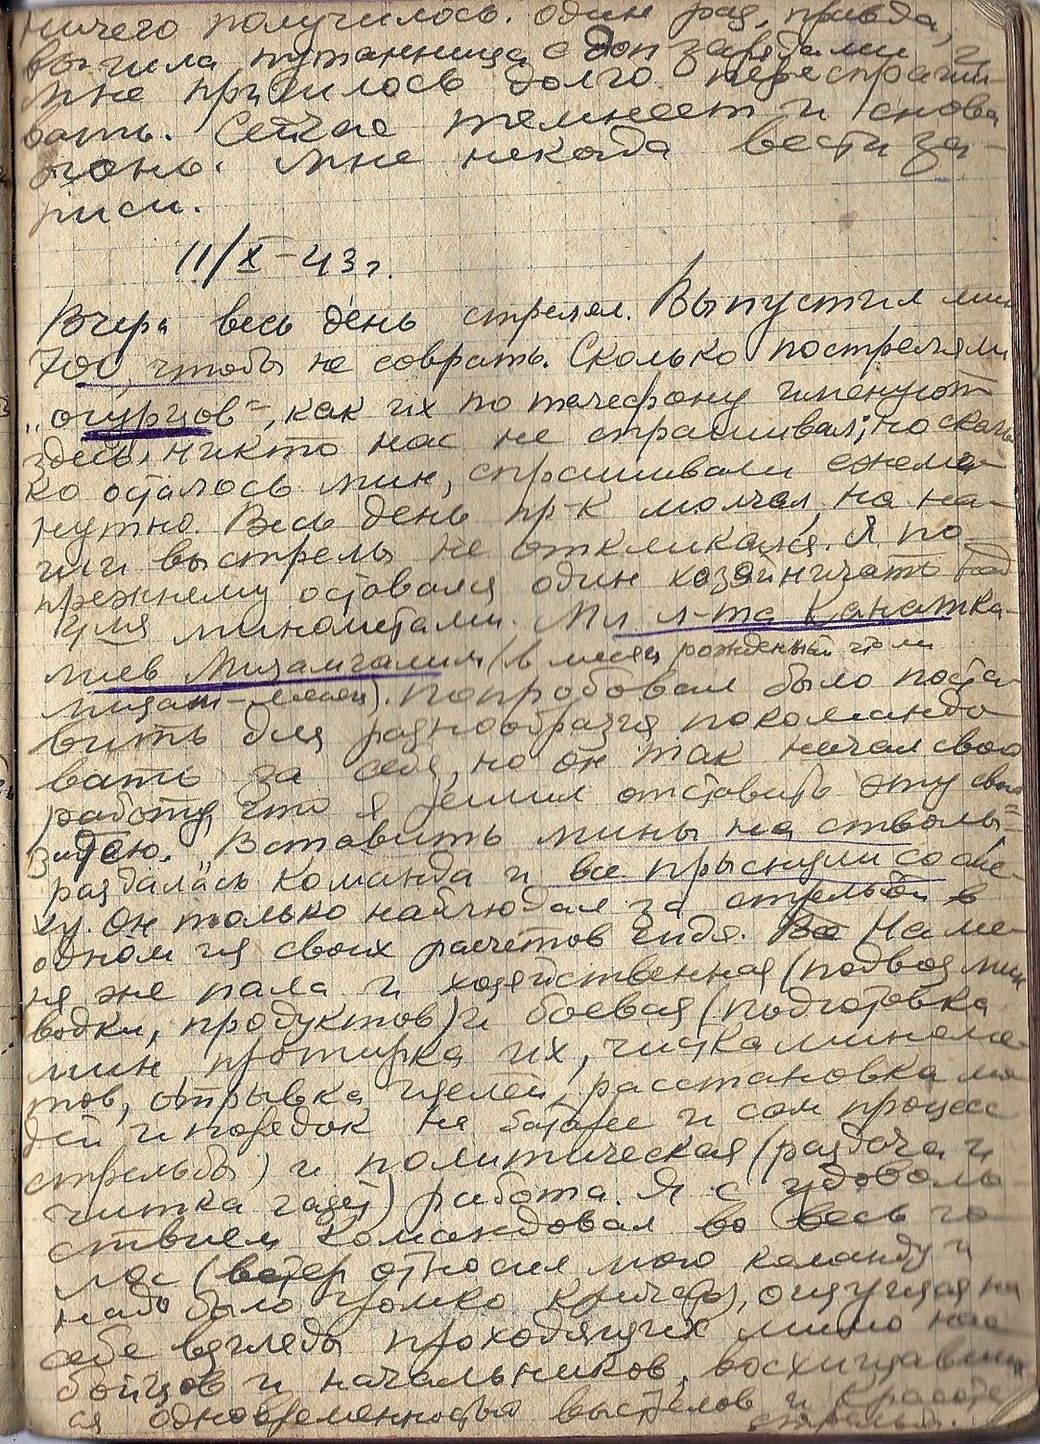 ничего получилось. Один раз, правда,
вышла путанница с доп зарядами и
мне пришлось долго переспраши-
вать. Сейчас темнеет и снова
огонь. Мне некогда вести за-
писи.
11/X-43 г.
Вчера весь день стрелял. Выпустил мин
700, чтобы не соврать. Сколько постреляли
„огурцов“, как их по телефону именуют
здесь, никто нас не спрашивал; но сколь
ко осталось мин, спрашивали ежеми-
нутно. Весь день пр-к молчал, на на-
ши выстрелы не откликался. Я по-
прежнему оставался один хозяйничать над
4мя минометами. Мл л-та Канатка-
лиев Мизамгалим (в месяц рожденный что ли
мизам-месяц). Попробовал было поста-
вить для разнообразия покомандо
вать за себя, но он так начал свою
работу, что я решил отставить эту свою
затею. „Вставить мины на стволы“-
раздалась команда и все прыснули со сме-
ху. Он только наблюдал за стрельбой в
одном из своих расчетов сидя. Все На ме-
ня же пала и хозяйственная (подвоз мин
водки, продуктов) и боевая (подготовка
мин протирка их, чистка миноме-
тов, отрывка щелей, расстановка лю-
дей и порядок на батарее и сам процесс
стрельбы) и политическая (раздача и
читка газет) работа. Я с удоволь-
ствием командовал во весь го-
лос (ветер относил мою команду и
надо было громко кричать), ощущая на
себе взгляды проходящих мимо нас
бойцов и начальников, восхищавших
ся одновременностью выстрелов и красоте
стрельбы.